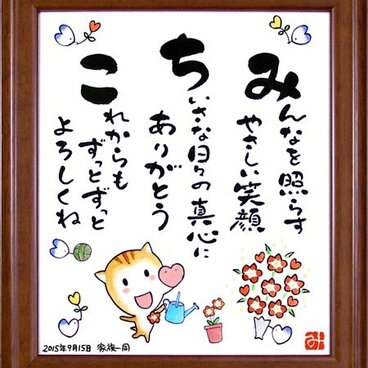 みんなを照らす
やさしい笑顔
ちいさな日々の真心に
ありがとう
これからも
ずっとずっと
よろしくね
2015年9月15日 家族一同